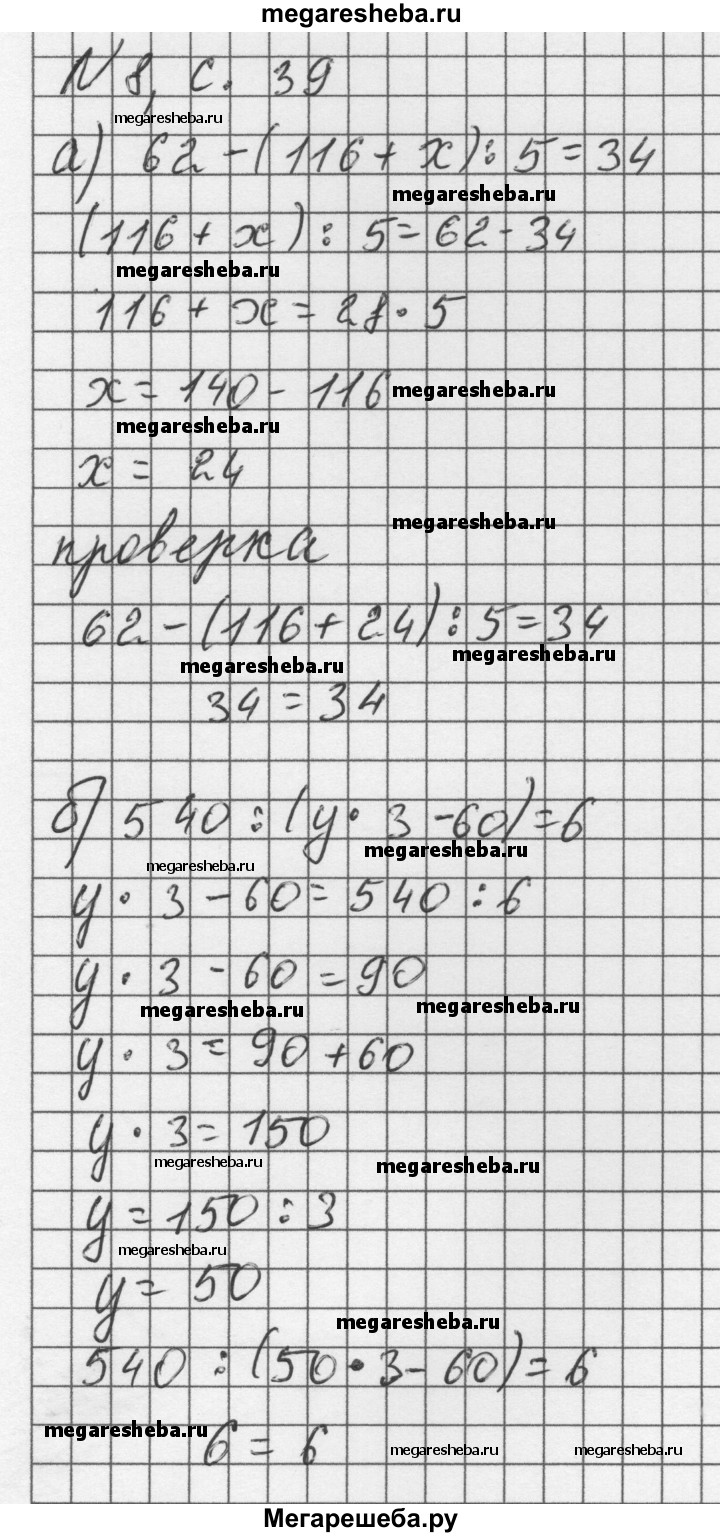 megaresheba.ru
N 8, с. 39
megaresheba.ru
а) 62 - (116 + x) : 5 = 34
megaresheba.ru
(116 + x) : 5 = 62 - 34
megaresheba.ru
116 + x = 28 · 5
x = 140 - 116 megaresheba.ru
megaresheba.ru
x = 24
megaresheba.ru
проверка
62 - (116 + 24) : 5 = 34
megaresheba.ru megaresheba.ru
34 = 34
б) 540 : (y · 3 - 60) = 6
megaresheba.ru megaresheba.ru
y · 3 - 60 = 540 : 6
y · 3 - 60 = 90
megaresheba.ru megaresheba.ru
y · 3 = 90 + 60
y · 3 = 150
megaresheba.ru megaresheba.ru
y = 150 : 3
megaresheba.ru
y = 50
megaresheba.ru
540 : (50 · 3 - 60) = 6
megaresheba.ru 6 = 6 megaresheba.ru megaresheba.ru
Мегарешеба.ру